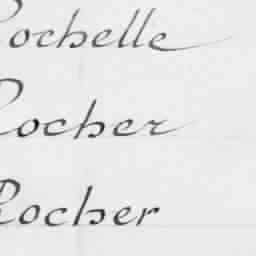 Rochelle
Rocher
Rocher